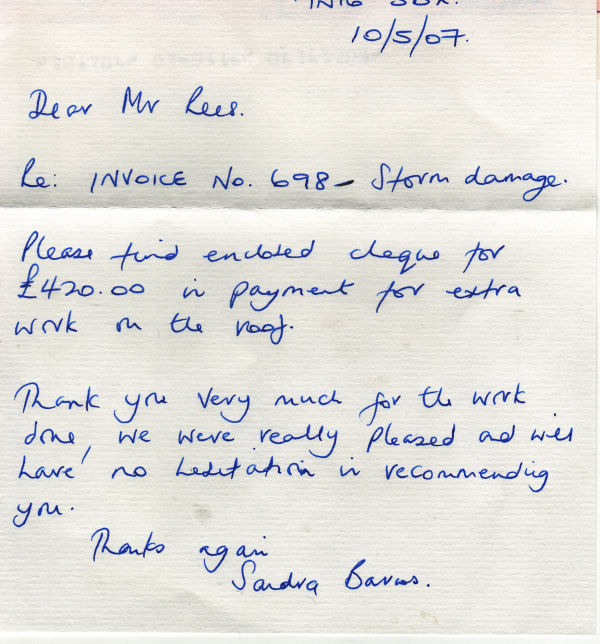 10/5/07.
Dear Mr Rees.
Re: INVOICE No. 698 - Storm damage.
Please find enclosed cheque for
£420.00 in payment for extra
work on the roof.
Thank you very much for the work
done, we were really pleased and will
have no hesitation in recommending
you.
Thanks again
Sandra